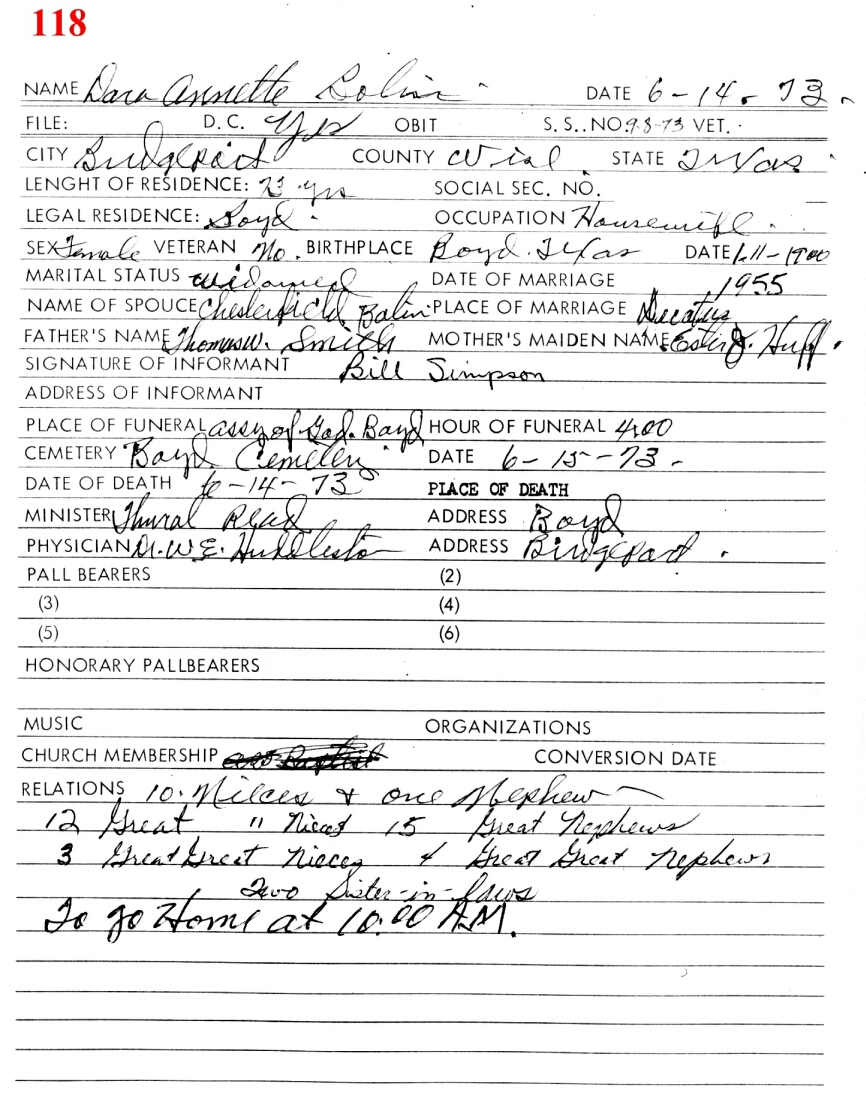 118
NAME Dara Annette Bolin DATE 6-14-73
FILE: D.C. Yes OBIT S.S..NO.9-8-73 VET.
CITY Bridgeport COUNTY Wise STATE Texas
LENGHT OF RESIDENCE: 73 yrs SOCIAL SEC. NO.
LEGAL RESIDENCE: Boyd OCCUPATION Housewife
SEX Female VETERAN No. BIRTHPLACE Boyd. Texas DATE 1-11-1900
MARITAL STATUS widowed DATE OF MARRIAGE 1955
NAME OF SPOUCE Chesterfield Bolin PLACE OF MARRIAGE Decatur
FATHER'S NAME Thomas W. Smith MOTHER'S MAIDEN NAME Ester J. Huff
SIGNATURE OF INFORMANT Bill Simpson
ADDRESS OF INFORMANT
PLACE OF FUNERAL assy of God. Boyd HOUR OF FUNERAL 4:00
CEMETERY Boyd Cemetery DATE 6-15-73
DATE OF DEATH 6-14-73 PLACE OF DEATH
MINISTER Thural Read ADDRESS Boyd
PHYSICIAN Dr. W.E. Huddleston ADDRESS Bridgeport
PALL BEARERS (2)
(3) (4)
(5) (6)
HONORARY PALLBEARERS
MUSIC ORGANIZATIONS
CHURCH MEMBERSHIP CONVERSION DATE
RELATIONS 10. Nieces & one Nephew
12 Great " Nieces 15 Great Nephews
3 Great Great Nieces 4 Great Great Nephews
Two Sister-in-laws
To go Home at 10:00 AM.